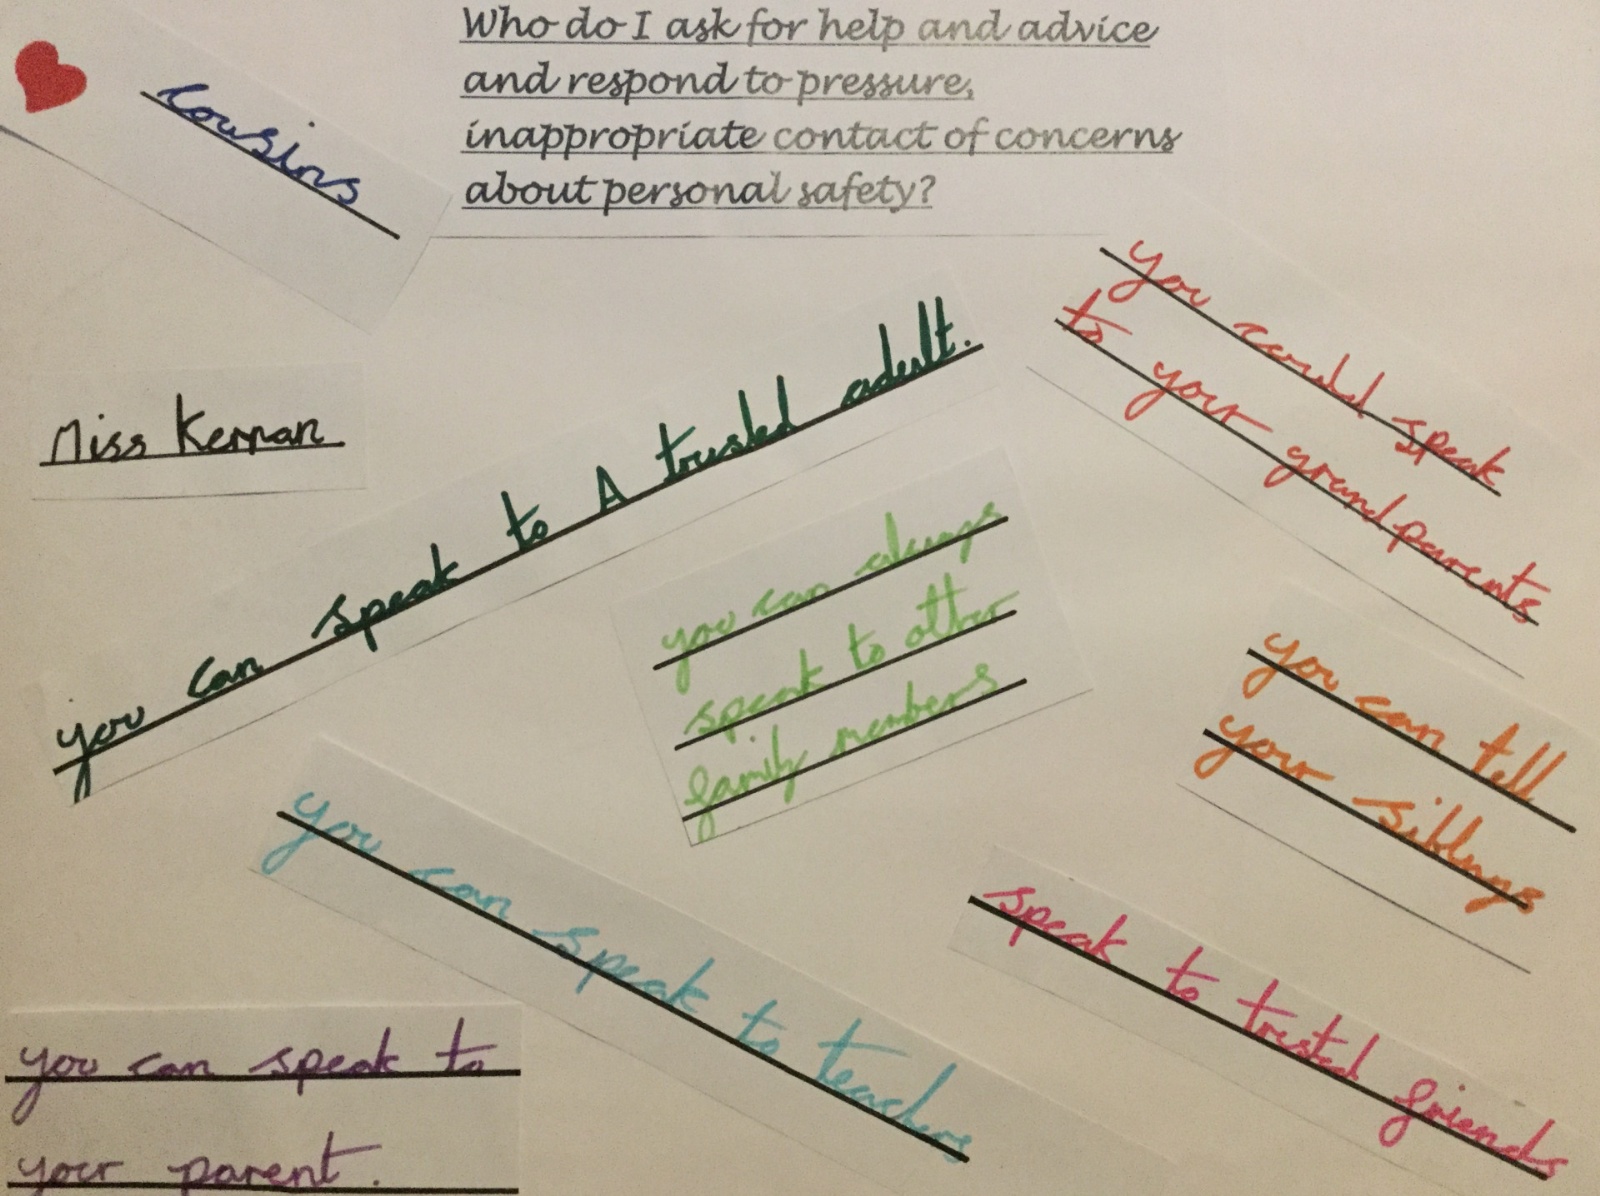 Who do I ask for help and advice
and respond to pressure,
inappropriate contact of concerns
about personal safety?
cousins
you could speak
to your grandparents
Miss Kernan
you can speak to A trusted adult.
you can always
speak to other
family members
you can tell
your siblings
you can speak to teachers
speak to trusted friends
you can speak to
your parent.